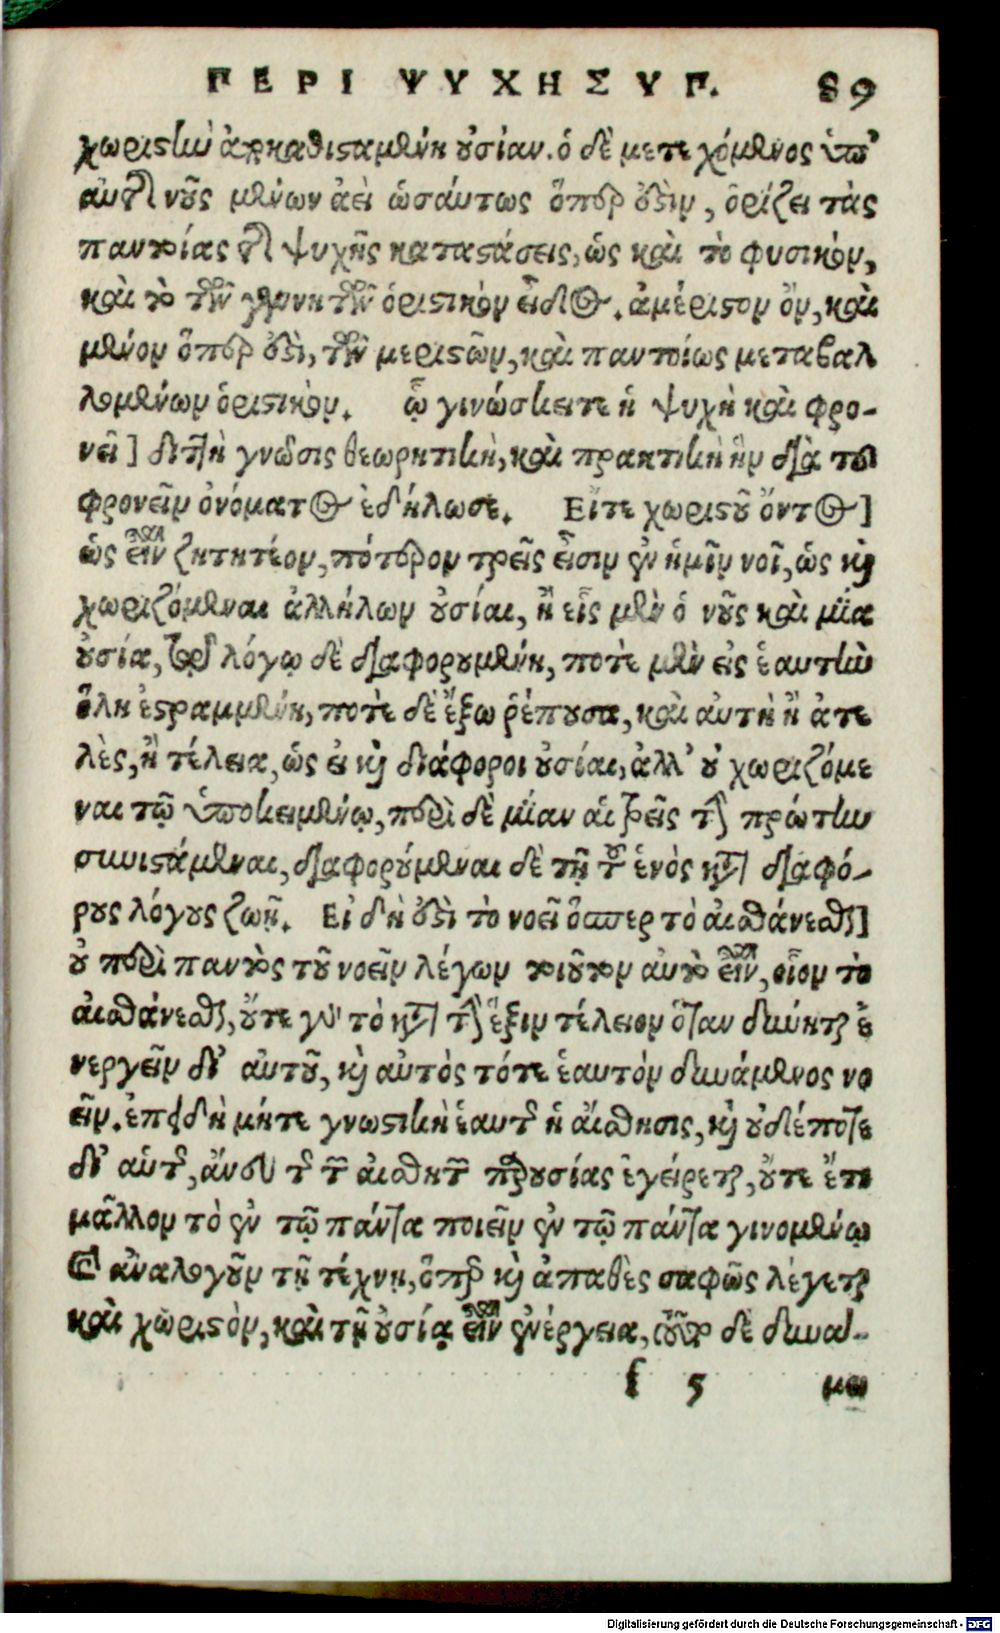 ΠΕΡΙ ΨΥΧΗΣ ΥΠ. 89
χωριστὴν ἀποκαθισταμένη οὐσίαν. ὁ δὲ μετεχόμενος ὑπ'
αὐτῆς νοῦς μένων ἀεὶ ὡσάυτως ὅπερ ὅστιν, ὁρίζει τὰς
παντοίας τῆς ψυχῆς καταστάσεις, ὡς καὶ τὸ φυσικὸν,
καὶ τὸ τῶν γεννητῶν ὁριστικὸν εἶδος. ἀμέριστον ὂν, καὶ
μένον ὅπερ ὅστὶ, τῶν μεριστῶν, καὶ παντοίως μεταβαλ
λομένων ὁριστικὸν. ᾧ γινώσκει τε ἡ ψυχὴ καὶ φρο-
νεῖ] διττὴ γνῶσις θεωρητικὴ, καὶ πρακτικὴ ἣν διὰ τοῦ
φρονεῖν ὀνόματος ἐδήλωσε. Εἴτε χωριστοῦ ὄντος]
ὡς εἶναι ζητητέον, πότερον τρεῖς εἶσιν ἐν ἡμῖν νοῖ, ὡς καὶ
χωριζόμεναι ἀλλήλων οὐσίαι, ἢ εἷς μὲν ὁ νοῦς καὶ μία
οὐσία, τῷ λόγῳ δὲ διαφορουμένη, ποτὲ μὲν εἰς ἑαυτὴν
ὅλη ἐστραμμένη, ποτὲ δὲ ἔξω ῥέπουσα, καὶ αὐτὴ ἢ ἀτε
λὲς, ἢ τέλεια, ὡς εἰ καὶ διάφοροι οὐσίαι, ἀλλ' οὐ χωριζόμε
ναι τῷ ὑποκειμένῳ, περὶ δὲ μίαν αἱ τρεῖς τὴν πρώτην
συνιστάμεναι, διαφορούμεναι δὲ τῇ τοῦ ἑνὸς κατὰ διαφό-
ρους λόγους ζωῇ. Εἰ δὴ ὅστὶ τὸ νοεῖν ὥσπερ τὸ αἰσθάνεσθαι]
οὐ περὶ παντὸς τοῦ νοεῖν λέγων τοιοῦτον αὐτὸ εἶναι, οἷον τὸ
αἰσθάνεσθαι, οὔτε γὰρ τὸ κατὰ τὴν ἕξιν τέλειον ὅταν δύνηται ἐ
νεργεῖν δι' αὑτοῦ, καὶ αὐτὸς τότε ἑαυτὸν δυνάμενος νο
εῖν. ἐπειδὴ μήτε γνωστικὴ ἑαυτῆς ἡ αἴσθησις, καὶ οὐδέποτε
δι' αὑτῆς, ἄνευ τῆς τῶν αἰσθητῶν παρουσίας ἐγείρεται, οὔτε ἔτι
μᾶλλον τὸ ἐν τῷ πάντα ποιεῖν ἐν τῷ πάντα γινομένῳ
καὶ ἀναλογοῦν τῇ τέχνῃ, ὅπερ καὶ ἀπαθὲς σαφῶς λέγεται
καὶ χωριστὸν, καὶ τῇ οὐσίᾳ εἶναι ἐνέργεια, τοῦτο δὲ δυναί-
f 5 μω
Digitalisierung gefördert durch die Deutsche Forschungsgemeinschaft - DFG